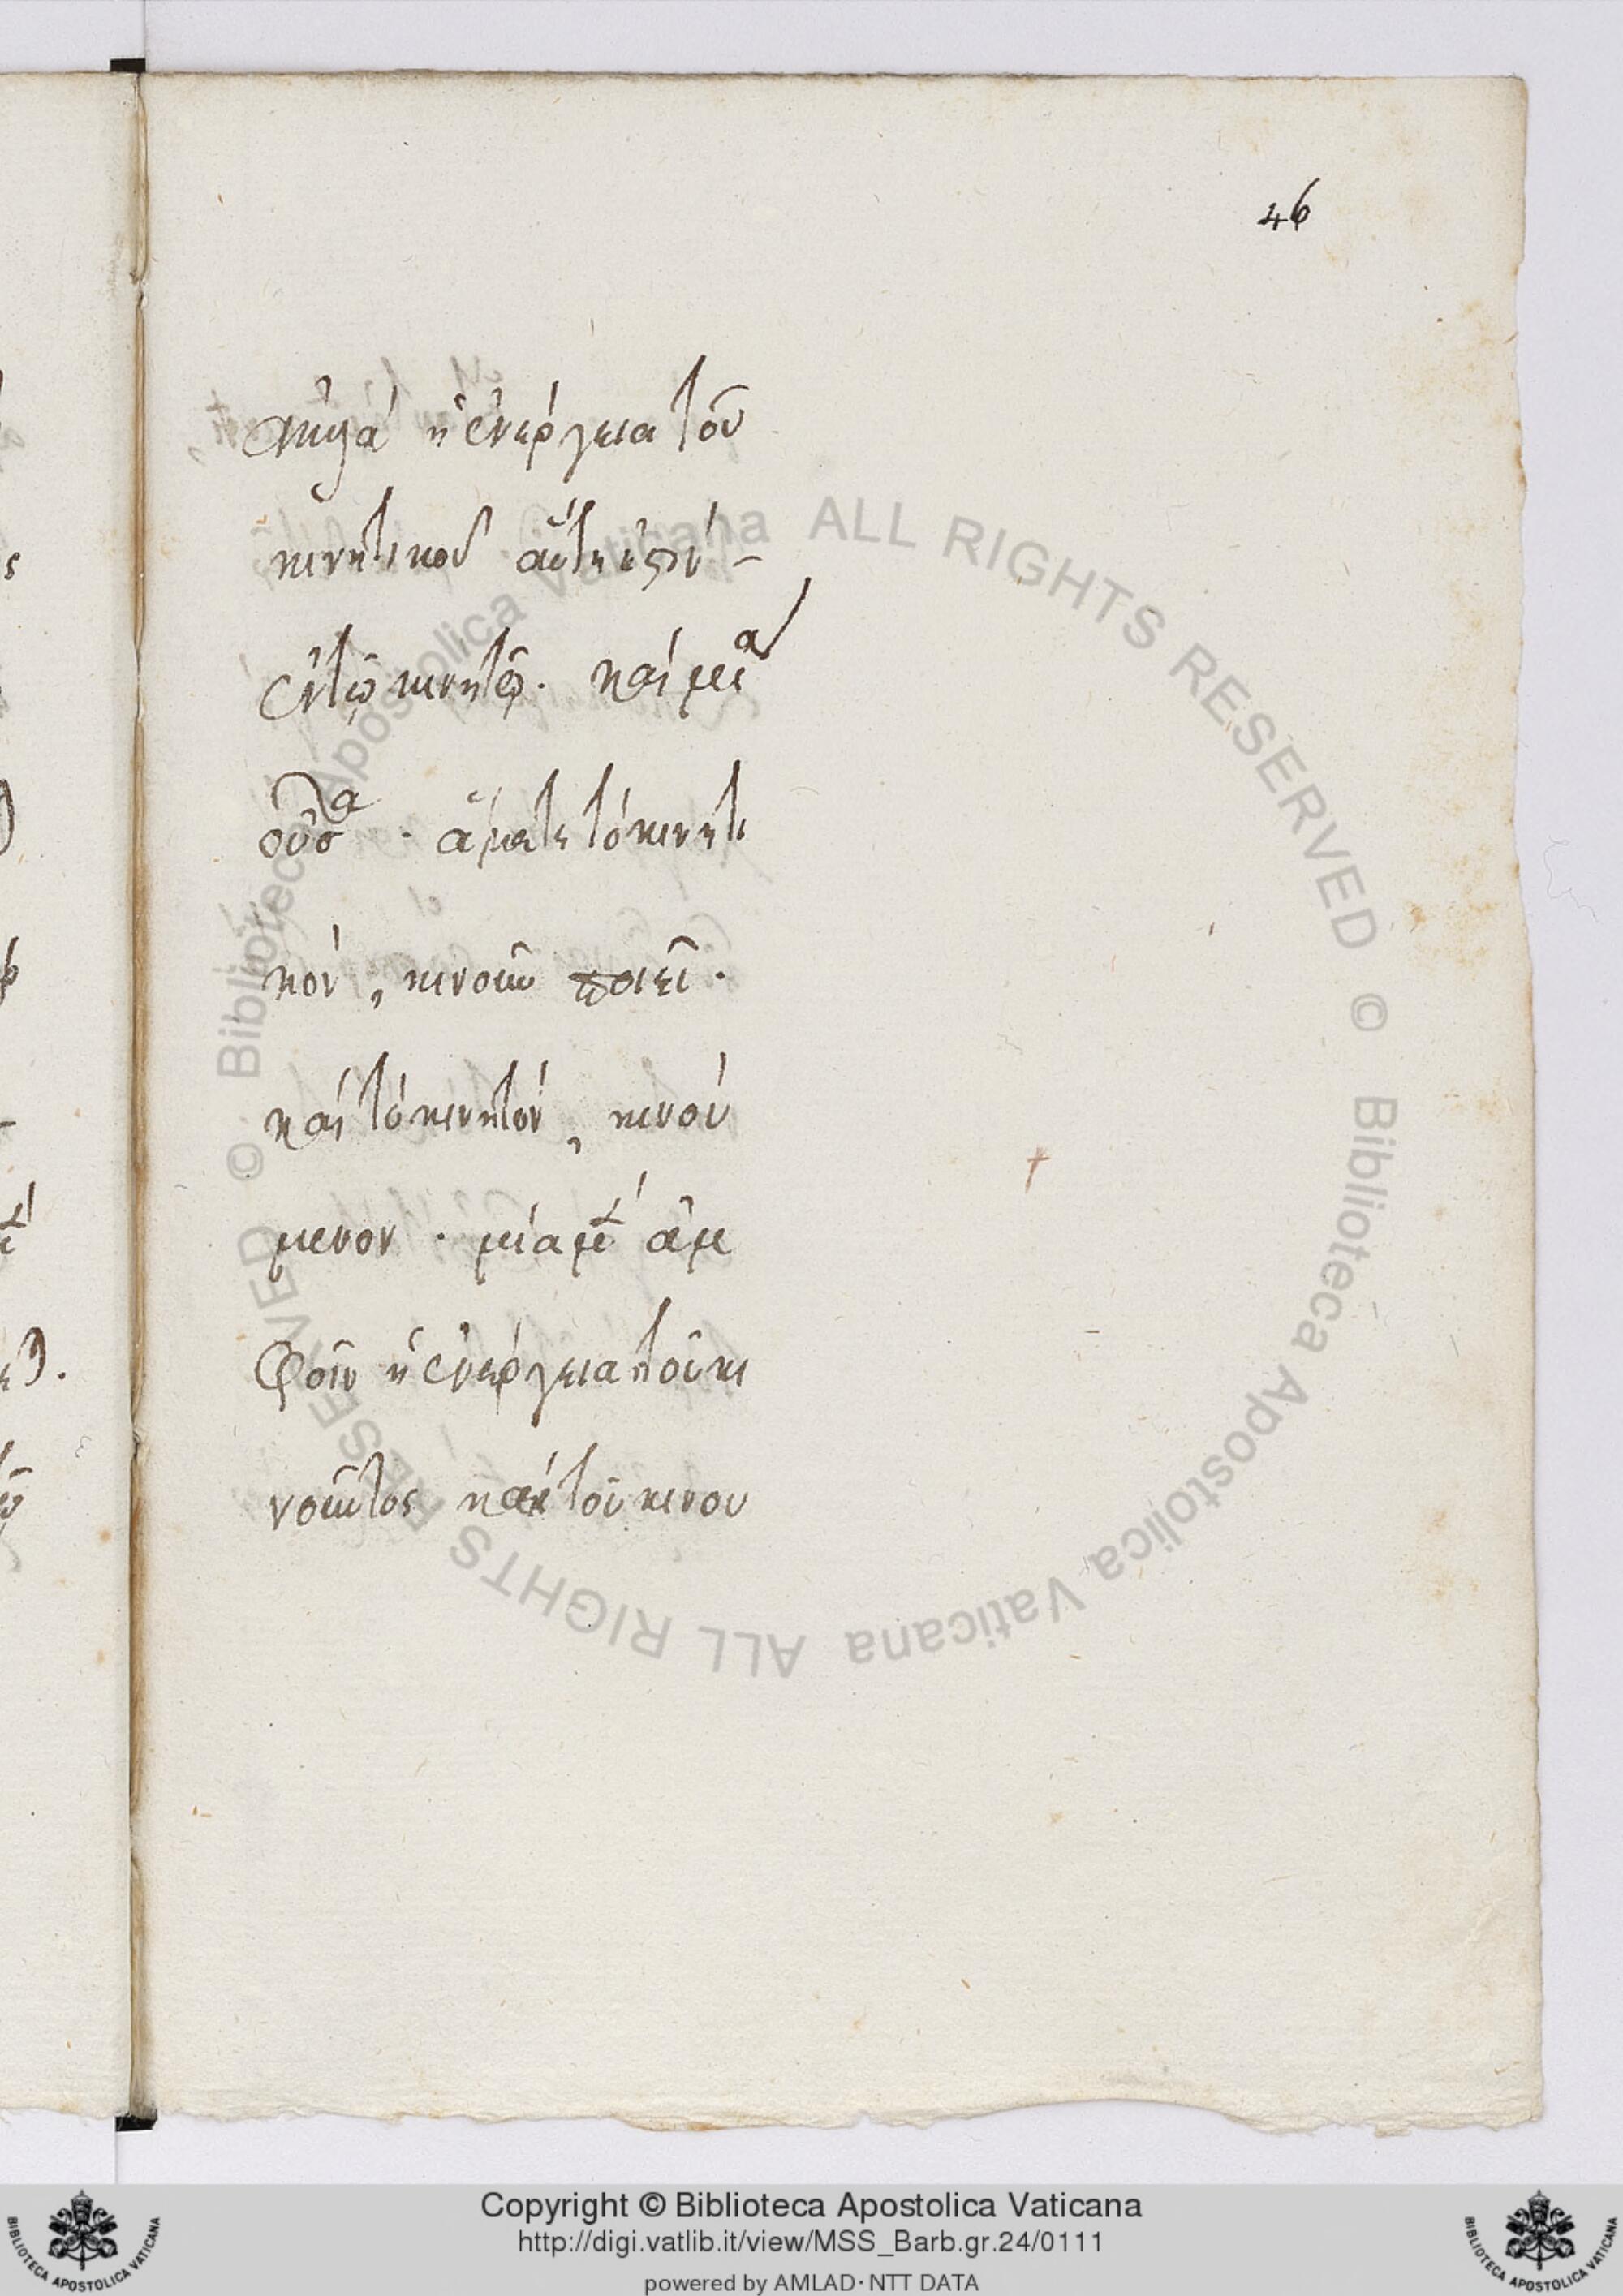 46
ἀλλὰ ἡ ἐνέργεια τοῦ
κινητικοῦ αὕτη ἐστίν -
ἐν τῷ κινητῷ. καὶ μία
οὖσα · ἅμα τε τὸ κινητι
κόν, κινοῦν ποιεῖ ·
καὶ τὸ κινητόν, κινού
μενον · μία μὲν ἀμ
φοῖν ἡ ἐνέργεια τοῦ κι
νοῦντος καὶ τοῦ κινου
© Biblioteca Apostolica Vaticana ALL RIGHTS RESERVED © Biblioteca Apostolica Vaticana ALL RIGHTS RESERVED
Copyright © Biblioteca Apostolica Vaticana
http://digi.vatlib.it/view/MSS_Barb.gr.24/0111
powered by AMLAD · NTT DATA
BIBLIOTECA APOSTOLICA VATICANA
BIBLIOTECA APOSTOLICA VATICANA